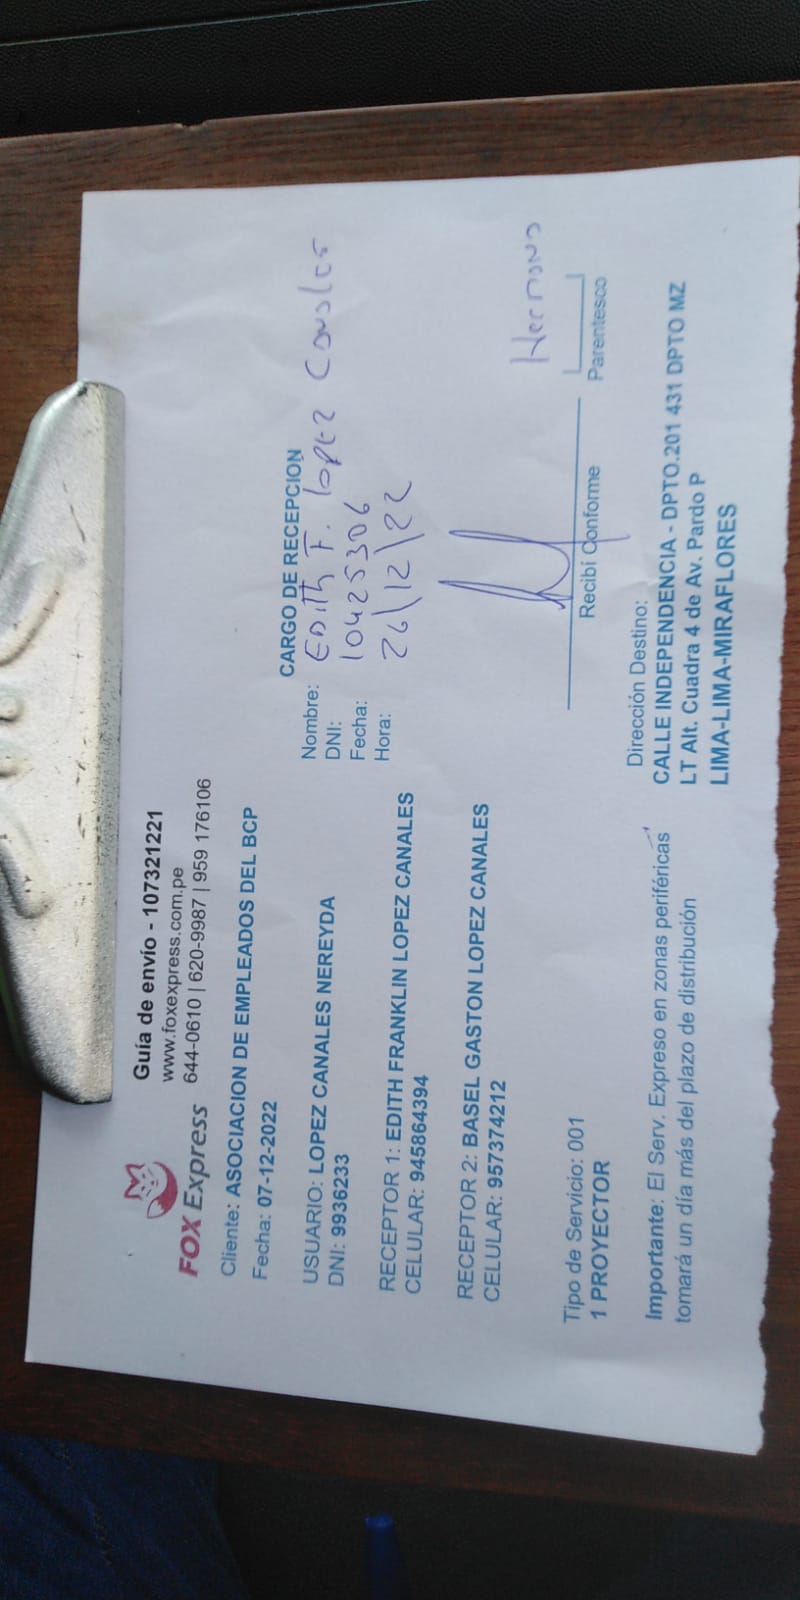 FOX Express
Guía de envío - 107321221
www.foxexpress.com.pe
644-0610 | 620-9987 | 959 176106
Cliente: ASOCIACION DE EMPLEADOS DEL BCP
Fecha: 07-12-2022
USUARIO: LOPEZ CANALES NEREYDA
DNI: 9936233
RECEPTOR 1: EDITH FRANKLIN LOPEZ CANALES
CELULAR: 945864394
RECEPTOR 2: BASEL GASTON LOPEZ CANALES
CELULAR: 957374212
Tipo de Servicio: 001
1 PROYECTOR
Importante: El Serv. Expreso en zonas periféricas
tomará un día más del plazo de distribución
CARGO DE RECEPCION
Nombre: Edith F. Lopez Canales
DNI: 10425306
Fecha: 26/12/22
Hora:
Recibí Conforme
Hermano
Parentesco
Dirección Destino:
CALLE INDEPENDENCIA - DPTO.201 431 DPTO MZ
LT Alt. Cuadra 4 de Av. Pardo P
LIMA-LIMA-MIRAFLORES